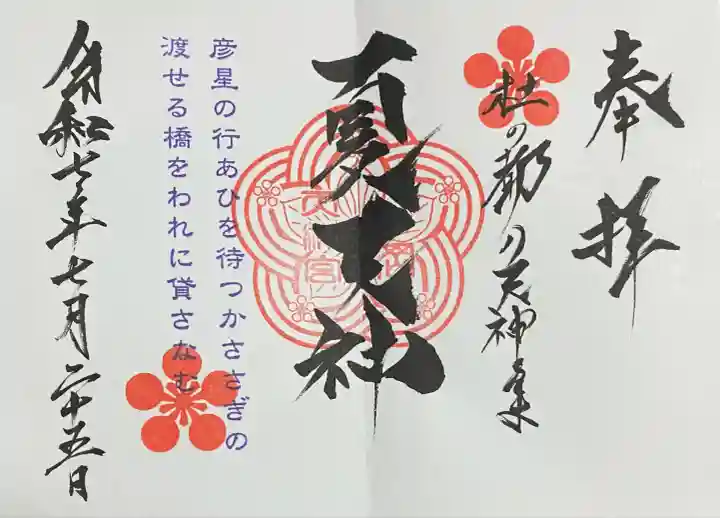 奉拝
杜の都の天神さま
夏天神
天満宮
彦星の行あひを待つかささぎの
渡せる橋をわれに貸さなむ
令和七年七月二十五日